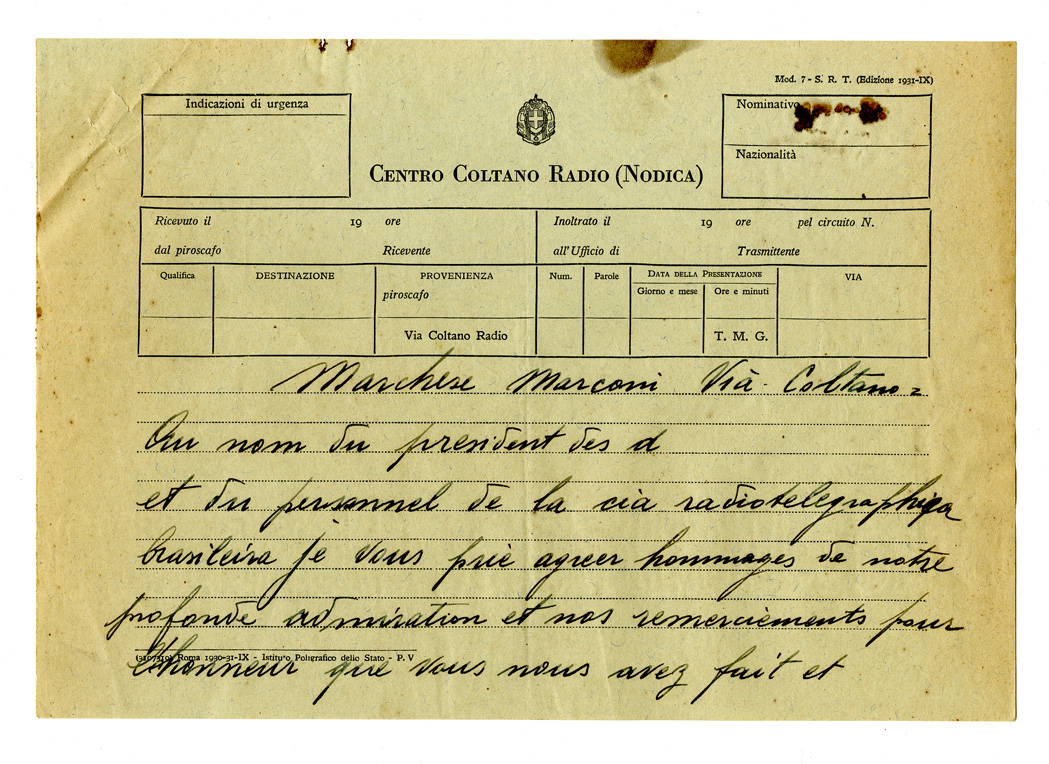 Mod. 7 - S. R. T. (Edizione 1931-IX)
Indicazioni di urgenza
Nominativo
Nazionalità
CENTRO COLTANO RADIO (NODICA)
Ricevuto il 19 ore
dal piroscafo Ricevente
Inoltrato il 19 ore pel circuito N.
all'Ufficio di Trasmittente
Qualifica
DESTINAZIONE
PROVENIENZA
piroscafo
Via Coltano Radio
Num.
Parole
DATA DELLA PRESENTAZIONE
Giorno e mese
Ore e minuti
T. M. G.
VIA
Marchese Marconi Vià - Coltano =
Au nom du president des d
et du personnel de la cia radiotelegraphiqa
brasileira je vous prie agreer hommages de notre
profonde admiration et nos remerciements pour
l'honneur que vous nous avez fait et
(3107319) Roma 1930-31-IX - Istituto Poligrafico dello Stato - P. V